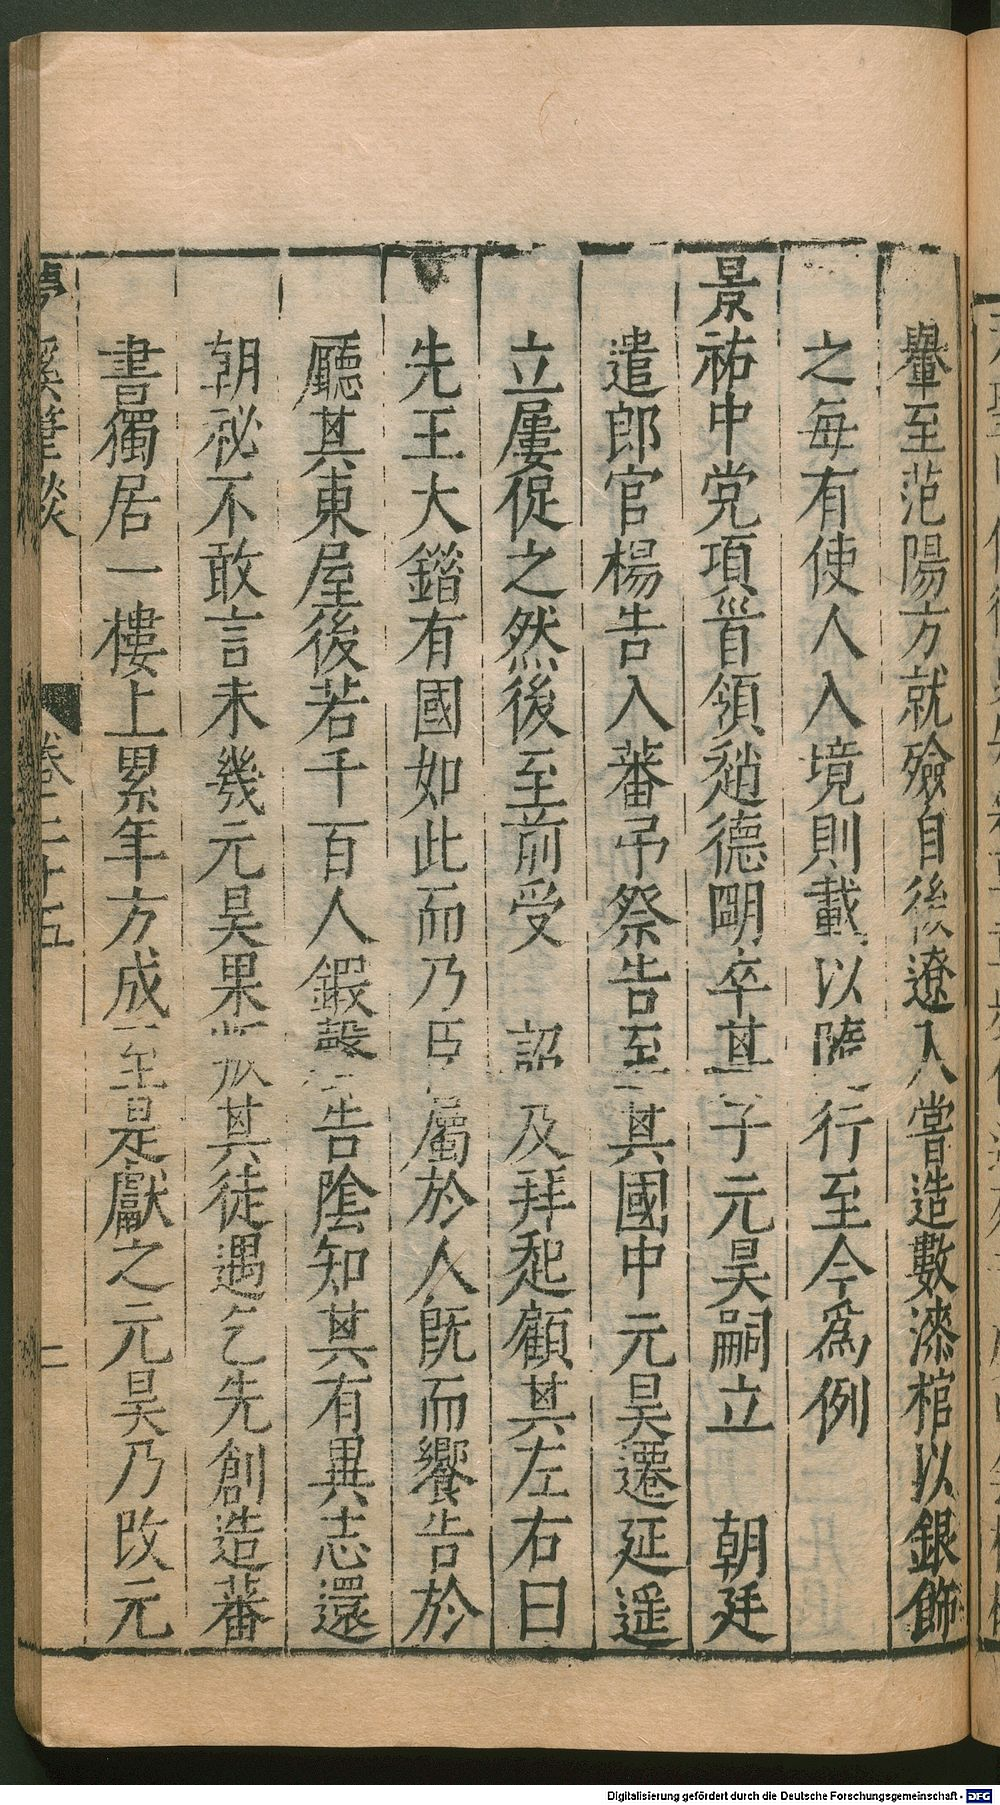 轝至范陽方就殮自後遼人嘗造數漆棺以銀飾
之每有使人入境則載以隨行至今爲例
景祐中党項首領趙德明卒其子元昊嗣立　朝廷
遣郎官楊告入蕃弔祭告至其國中元昊遷延遥
立屢促之然後至前受　詔及拜起顧其左右曰
先王大錯有國如此而乃臣屬於人既而饗告於
廳其東屋後若千百人鍛聲告陰知其有異志還
朝祕不敢言未幾元昊果叛其徒遇乞先創造蕃
書獨居一樓上累年方成至是獻之元昊乃改元
夢溪筆談　卷二十五　二
Digitalisierung gefördert durch die Deutsche Forschungsgemeinschaft - DFG